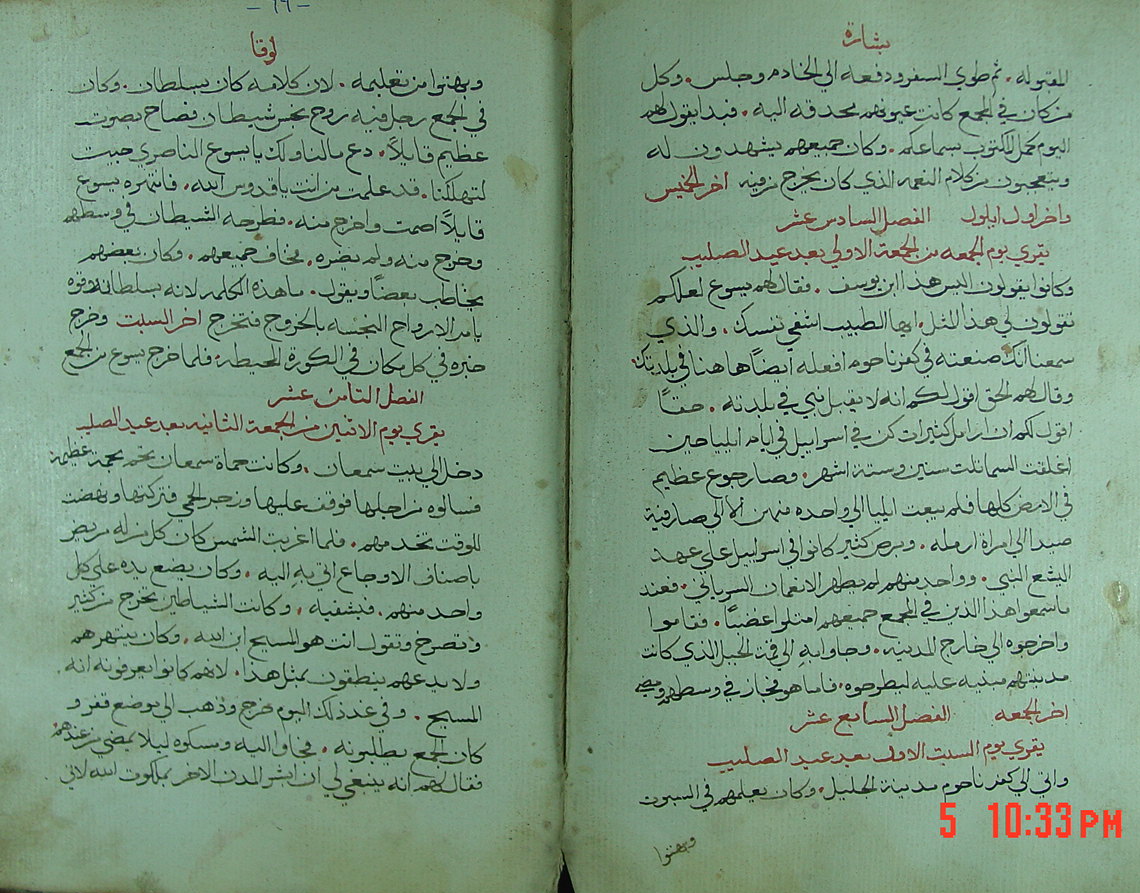 بشارة
المقبوله . ثم طوي السفر ودفعه الي الخادم وجلس . وكل
من كان في الجمع كانت عيونهم محدقه اليه . فبدا يقول لهم
اليوم كمل المكتوب بسماعكم . وكان جميعهم يشهدون له
ويتعجبون من كلام النعمه الذي كان يخرج من فيه اخر الخميس
واخر اول ايلول الفصل السادس عشر
يقري يوم الجمعه من الجمعة الاولي بعد عيد الصليب
وكانوا يقولون اليس هذا ابن يوسف . فقال لهم يسوع لعلكم
تقولون لي هذا المثل . ايها الطبيب اشفي نفسك . والذي
سمعنا انك صنعته في كفرناحوم افعله ايضًا هاهنا في بلدتك
وقال لهم الحق اقول لكم انه لا يقبل نبي في بلدته . حقًا
اقول لكم ان ارامل كثيرات كن في اسراييل في ايام ايليا حين
اغلقت السما ثلت سنين وستة اشهر . وصار جوع عظيم
في الارض كلها فلم يبعت ايليا الي واحده منهن الا الي صارفية
صيدا الي امراة ارمله . وبرص كثير كانوا في اسراييل علي عهد
اليشع النبي . وواحد منهم لم يطهر الا نعمان السرياني . فعند
ما سمعوا هذا الذين في المجمع جميعهم امتلوا غضبًا . فقاموا
واخرجوه الي خارج المدينه . وجاوا به الي قمة الجبل الذي كانت
مدينتهم مبنيه عليه ليطرحوه . فاما هو فجاز في وسطهم ومضي
اخر الجمعه الفصل السابع عشر
يقري يوم السبت الاول بعد عيد الصليب
واتي الي كفرناحوم مدينة الجليل . وكان يعلمهم في السبوت
وبهتوا
- ٦٩ -
لوقا
وبهتوا من تعليمه . لان كلامه كان بسلطان . وكان
في الجمع رجل فيه روح نجس شيطان فصاح بصوت
عظيم قايلًا . دع ما لنا ولك يا يسوع الناصري جيت
لتهلكنا . قد علمت من انت يا قدوس الله . فانتهره يسوع
قايلًا اصمت واخرج منه . فطرحه الشيطان في وسطهم
وخرج منه ولم يضره . فخاف جميعهم . وكان بعضهم
يخاطب بعضًا ويقول . ما هذه الكلمه لانه بسلطان وقوه
يامر الارواح النجسه بالخروج فتخرج اخر السبت وخرج
خبره في كل مكان في الكورة المحيطه . فلما خرج يسوع من الجمع
الفصل الثامن عشر
يقري يوم الاثنين من الجمعة الثانيه بعد عيد الصليب
دخل الي بيت سمعان . وكانت حماة سمعان بحمة عظيمة
فسالوه من اجلها فوقف عليها وزجر الحمي فتركتها ونهضت
للوقت تخدمهم . فلما اغربت الشمس كان كل من له مريض
باصناف الاوجاع اتي به اليه . وكان يضع يده علي كل
واحد منهم . فيشفيه . وكانت الشياطين تخرج من كثير
وتصرخ وتقول انت هو المسيح ابن الله . وكان ينتهرهم
ولا يدعهم ينطقون بمثل هذا . لانهم كانوا يعرفونه انه
المسيح . وفي غد ذلك اليوم خرج وذهب الي موضع قفر و
كان الجمع يطلبونه . فجاوا اليه ومسكوه ليلا يمضي من عندهم
فقال لهم انه ينبغي لي ان ابشر المدن الاخر بملكوت الله لاني
5 10:33 PM